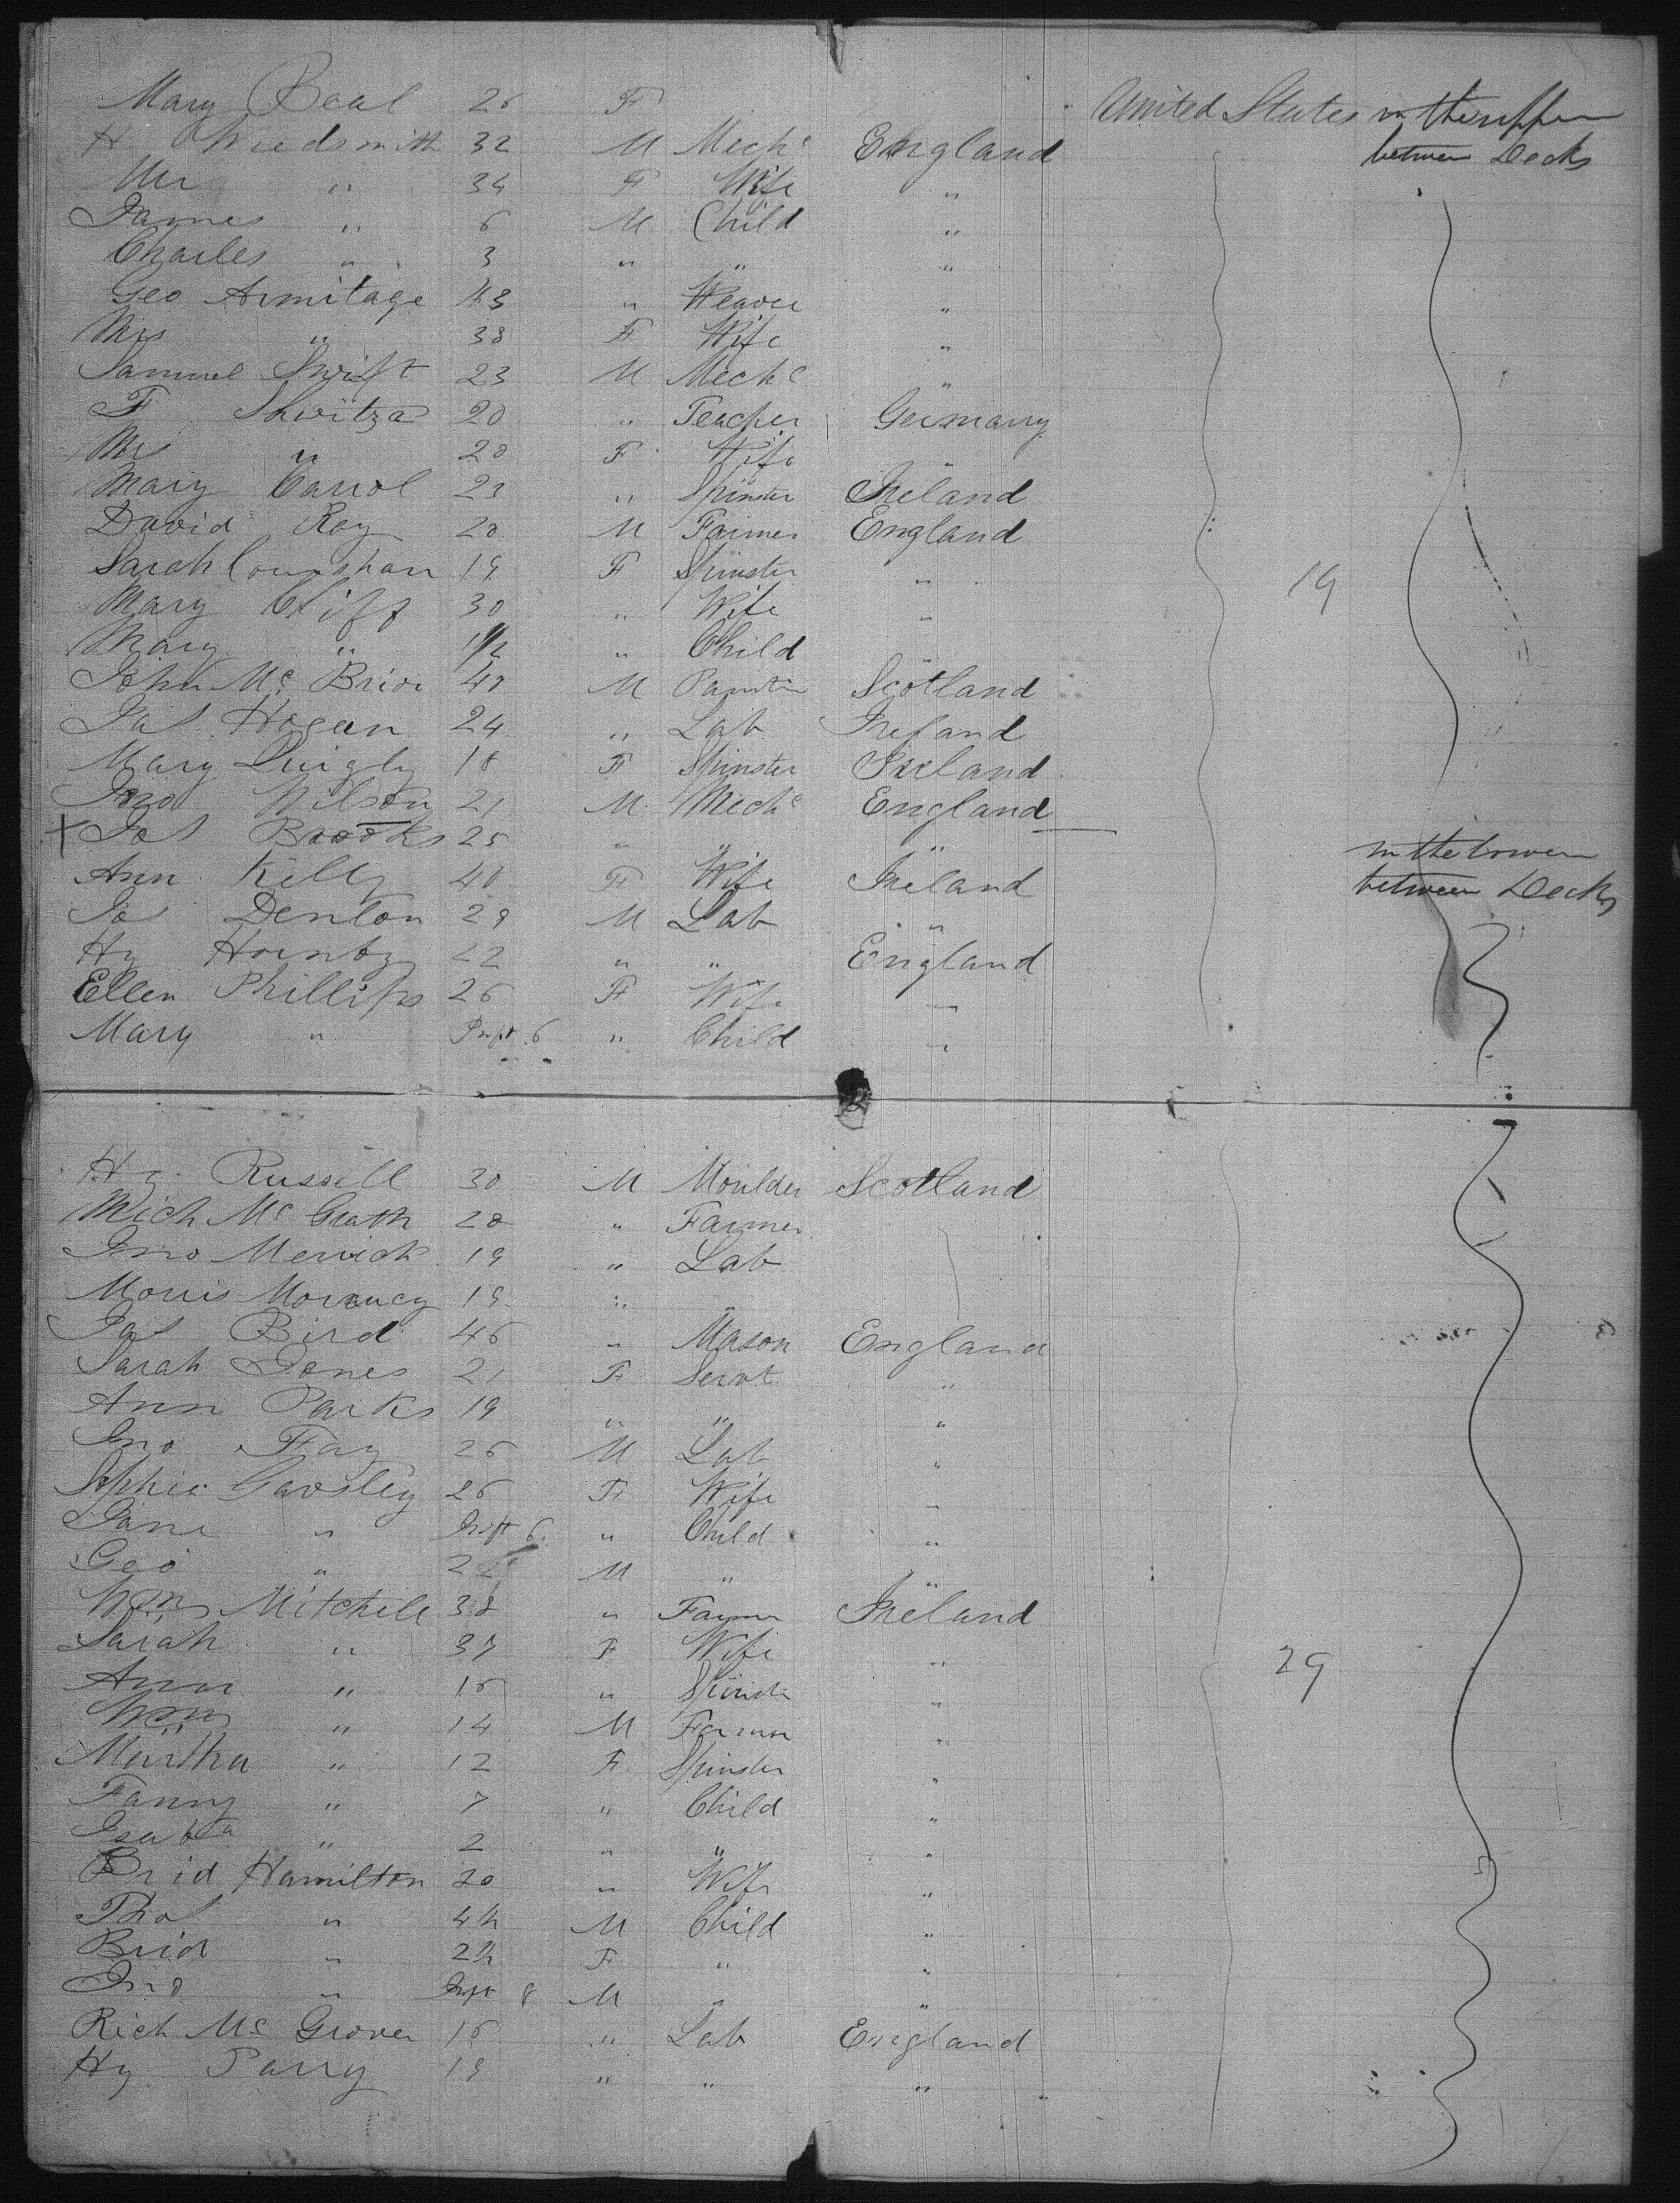 Mary Beal 26 F United States in the upper
H Weedsmith 32 M Mech^c England between Decks
Mrs " 34 F Wife "
James " 6 M Child "
Charles " 3 " " "
Geo Armitage 43 " Weaver "
Mrs " 38 F Wife "
Samuel Swift 23 M Mech^c "
F Shvitza 20 " Teacher Germany
Mrs " 20 F Wife "
Mary Carrol 23 " Spinster Ireland
David Roy 20 M Farmer England
Sarah 19 F Spinster "
Mary Cliff 30 " Wife " 19
Mary " 1 1/2 " Child "
John Mc Bride 40 M Painter Scotland
Jas Hogan 24 " Lab Ireland
Mary Quigly 18 F Spinster Ireland
Jno Wilson 21 M Mech^c England
X Jos Brooks 25 " " " in the Lower
Ann Kelly 40 F Wife Ireland between Decks
Jos Denton 29 M Lab "
Hy Hornby 22 " " England
Ellen Phillips 26 F Wife "
Mary " Inft 6 " Child "
Hy Russell 30 M Moulder Scotland
Mich Mc Grath 28 " Farmer
Jno Merrick 19 " Lab
Morris 19 " "
Jas Bird 46 " Mason England
Sarah Jones 21 F Servt "
Ann Parks 19 " " "
Jno Fay 26 M Lab "
Sophie Gavsley 26 F Wife "
Jane " Inft 6 " Child "
Geo " 22 M " "
Wm Mitchell 38 " Farmer Ireland
Sarah " 37 F Wife "
Ann " 16 " Spinster " 29
Wm " 14 M Farmer "
Martha " 12 F Spinster "
Fanny " 7 " Child "
Isabla " 2 " " "
Brid Hamilton 20 " Wife "
Thos " 4 M Child "
Brid " 2 F " "
Jno " Inft 8 M " "
Rich Mc Grover 16 " Lab England
Hy Parry 19 " " "